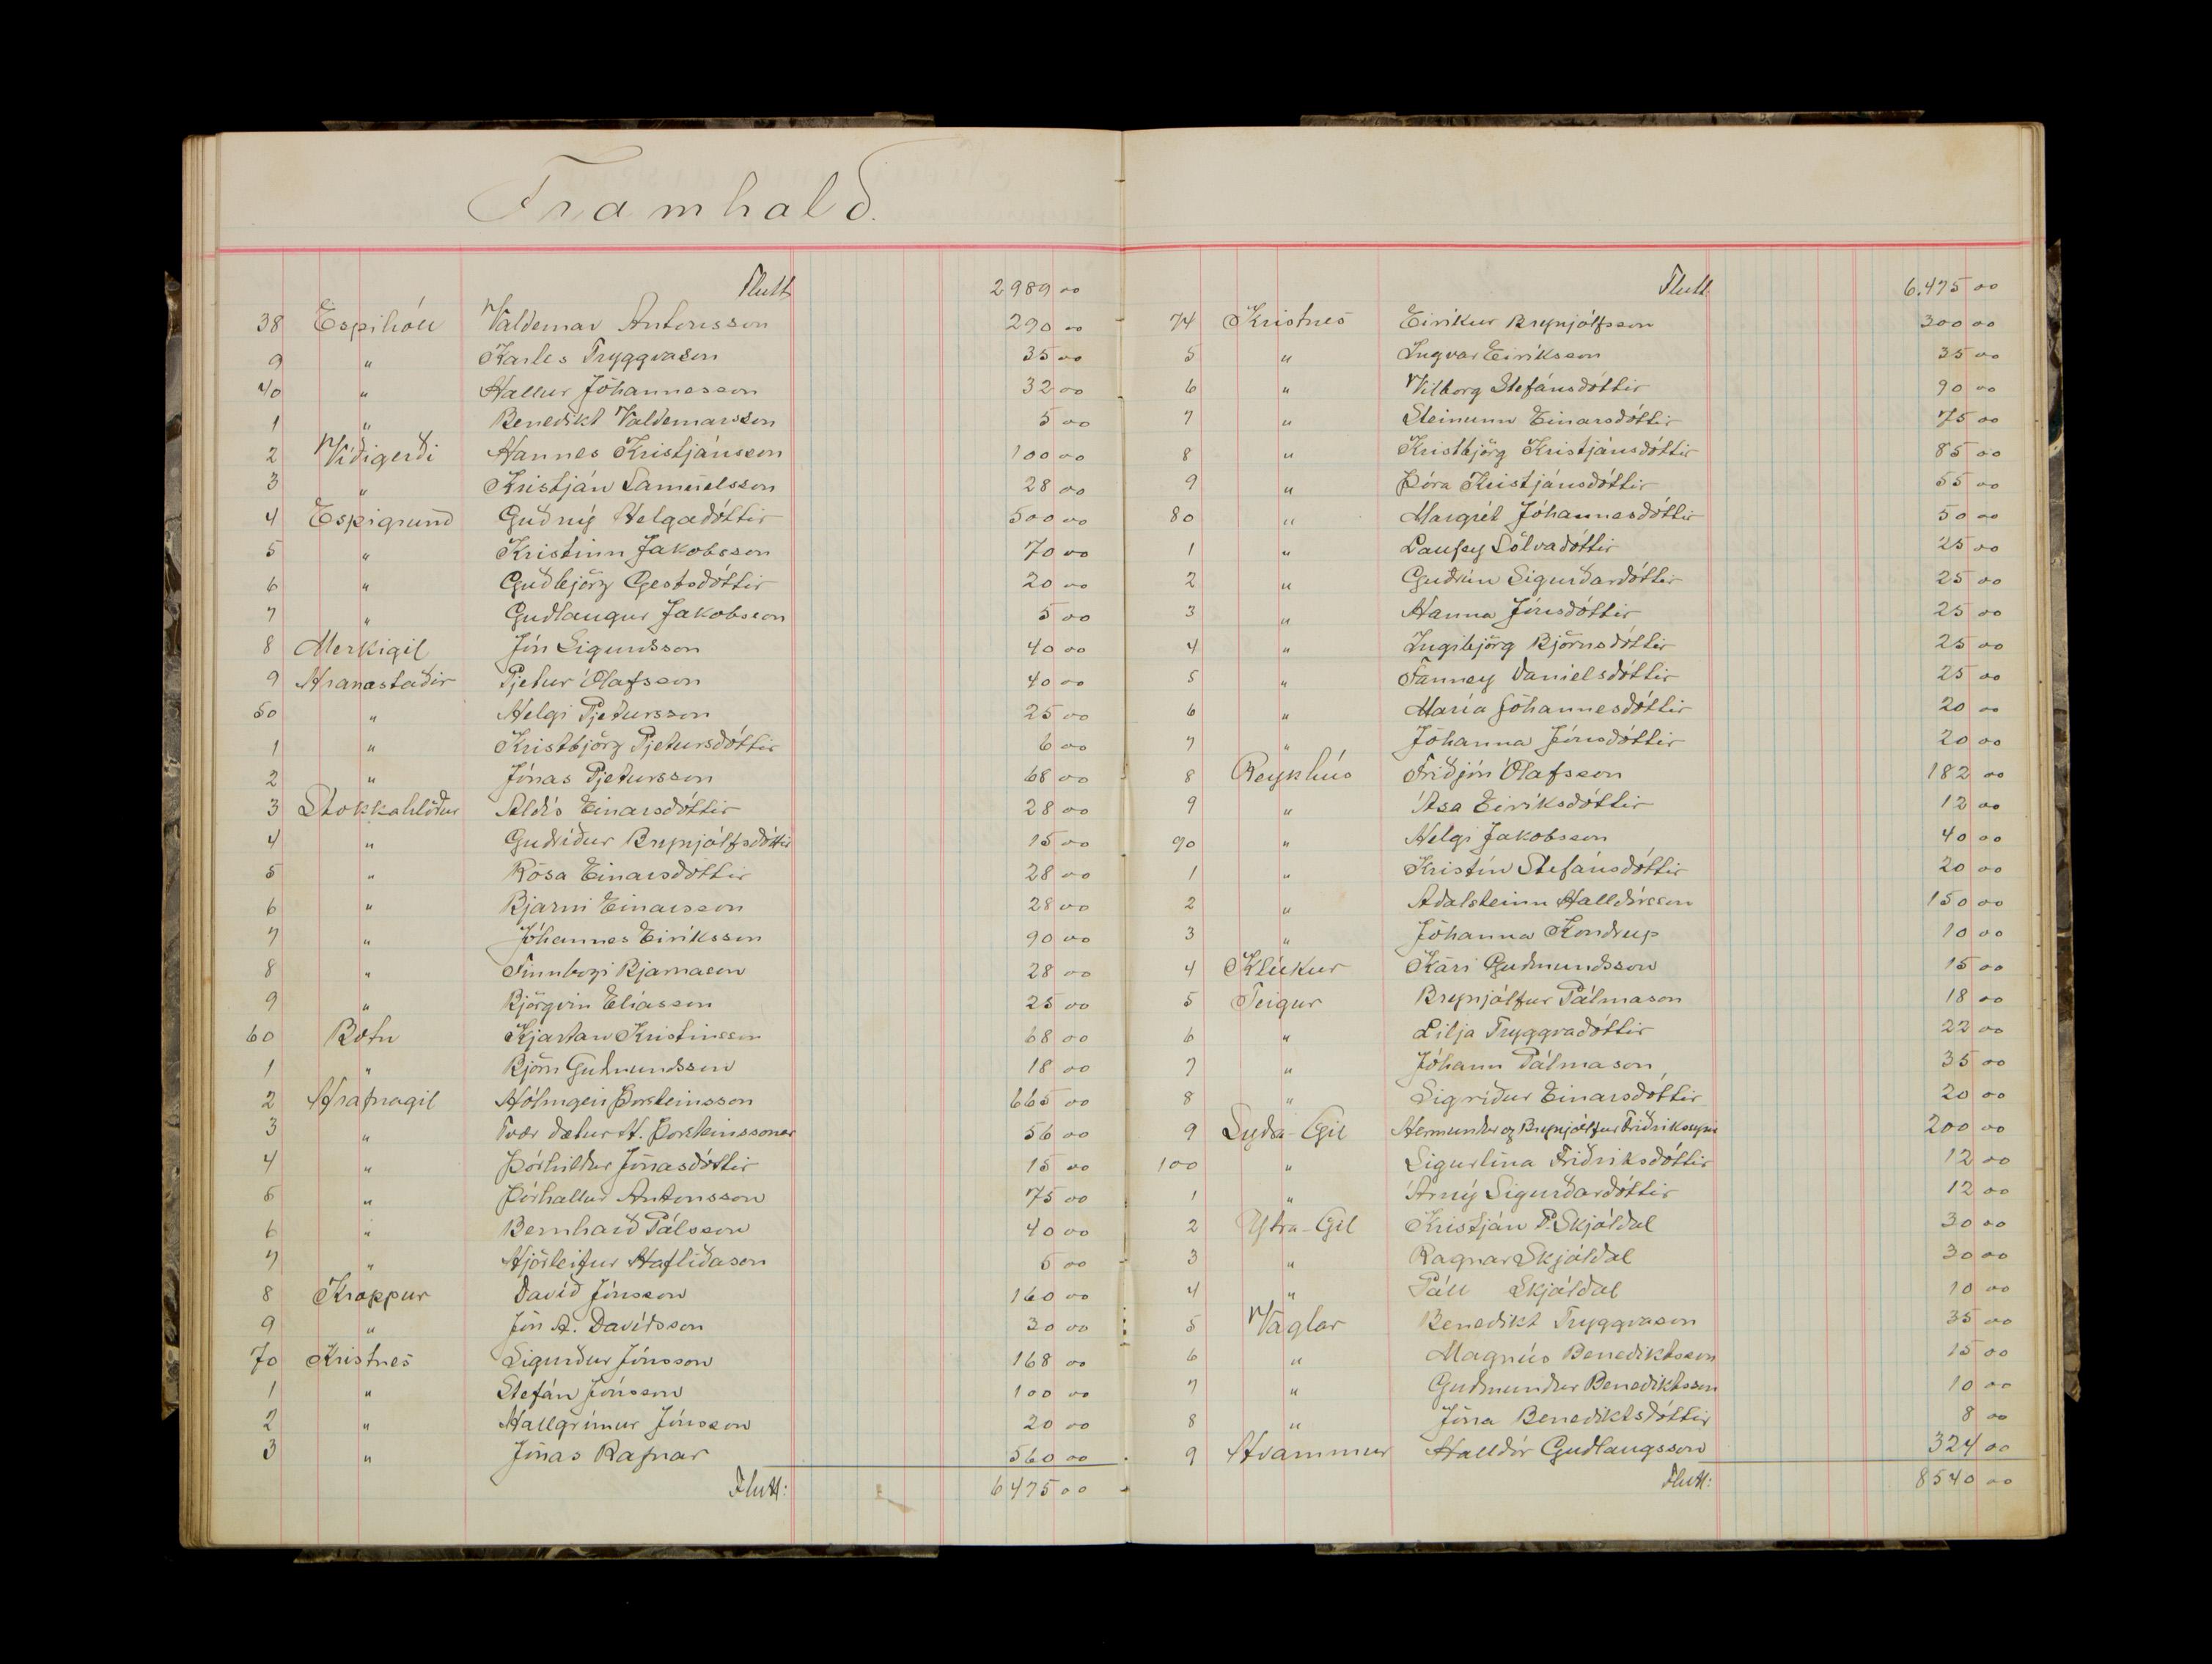 Framhald.
Flutt 2989 00
38 Espihóll Valdemar Antonsson 290 00
9 " Karles Tryggvason 35 00
40 " Hallur Jóhannesson 32 00
1 " Benedikt Valdemarsson 5 00
2 Víðigerði Hannes Kristjánsson 100 00
3 " Kristján Samúelsson 28 00
4 Espigrund Guðný Helgadóttir 500 00
5 " Kristinn Jakobsson 70 00
6 " Guðbjörg Gestsdóttir 20 00
7 " Guðlaugur Jakobsson 5 00
8 Merkigil Jón Sigurðsson 40 00
9 Hranastaðir Pjetur Ólafsson 40 00
50 " Helgi Pjetursson 25 00
1 " Kristbjörg Pjetursdóttir 6 00
2 " Jónas Pjetursson 68 00
3 Stokkahlöður Aldís Einarsdóttir 28 00
4 " Guðríður Brynjólfsdóttir 15 00
5 " Rósa Einarsdóttir 28 00
6 " Bjarni Einarsson 28 00
7 " Jóhannes Eiríksson 90 00
8 " Finnbogi Bjarnason 28 00
9 " Björgvin Elíasson 25 00
60 Botn Kjartan Kristinsson 68 00
1 " Björn Guðmundsson 18 00
2 Hrafnagil Hólmgeir Þorsteinsson 665 00
3 " Tvær dætur H. Þorsteinssonar 56 00
4 " Þórhildur Jónasdóttir 15 00
5 " Þórhallur Antonsson 75 00
6 " Bernharð Pálsson 40 00
7 " Hjörleifur Hafliðason 5 00
8 Kroppur Davíð Jónsson 160 00
9 " Jón A. Davíðsson 30 00
70 Kristnes Sigurður Jónsson 168 00
1 " Stefán Jónsson 100 00
2 " Hallgrímur Jónsson 20 00
3 " Jónas Rafnar 560 00
Flutt: 6475 00
Flutt 6.475 00
74 Kristnes Eiríkur Brynjólfsson 300 00
5 " Ingvar Eiríksson 35 00
6 " Vilborg Stefánsdóttir 90 00
7 " Steinunn Einarsdóttir 75 00
8 " Kristbjörg Kristjánsdóttir 85 00
9 " Þóra Kristjánsdóttir 55 00
80 " Margrét Jóhannesdóttir 50 00
1 " Laufey Sölvadóttir 25 00
2 " Guðrún Sigurðardóttir 25 00
3 " Hanna Jónsdóttir 25 00
4 " Ingibjörg Björnsdóttir 25 00
5 " Fanney Daníelsdóttir 25 00
6 " María Jóhannesdóttir 20 00
7 " Jóhanna Jónsdóttir 20 00
8 Reykhús Friðjón Ólafsson 182 00
9 " Ása Eiríksdóttir 12 00
90 " Helgi Jakobsson 40 00
1 " Kristín Stefánsdóttir 20 00
2 " Aðalsteinn Halldórsson 150 00
3 " Jóhanna Kondrup 10 00
4 Klúkur Kári Guðmundsson 15 00
5 Teigur Brynjólfur Pálmason 18 00
6 " Lilja Tryggvadóttir 22 00
7 " Jóhann Pálmason 35 00
8 " Sigríður Einarsdóttir 20 00
9 Syðra-Gil Hermundur og Brynjólfur Friðrikssynir 200 00
100 " Sigurlína Friðriksdóttir 12 00
1 " Árný Sigurðardóttir 12 00
2 Ytra-Gil Kristján P. Skjóldal 30 00
3 " Ragnar Skjóldal 30 00
4 " Páll Skjóldal 10 00
5 Vaglar Benedikt Tryggvason 35 00
6 " Magnús Benediktsson 15 00
7 " Guðmundur Benediktsson 10 00
8 " Jóna Benediktsdóttir 8 00
9 Hvammur Halldór Guðlaugsson 324 00
Flutt: 8540 00